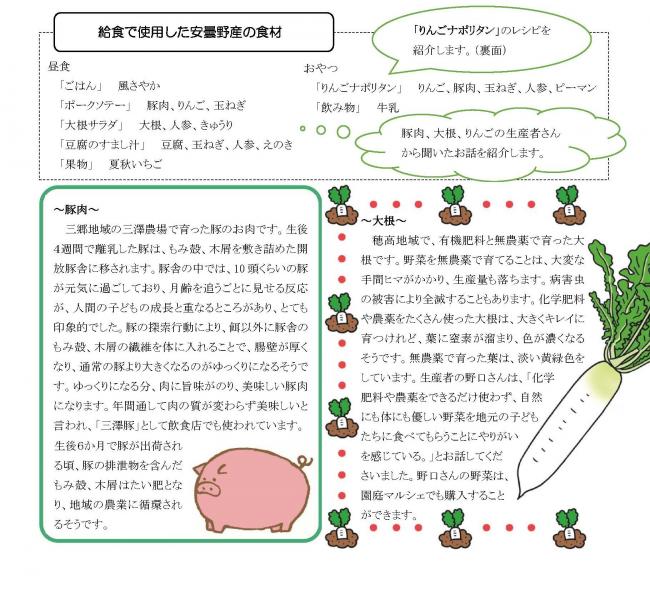 給食で使用した安曇野産の食材
「りんごナポリタン」のレシピを
紹介します。（裏面）
昼食
「ごはん」　風さやか
「ポークソテー」　豚肉、りんご、玉ねぎ
「大根サラダ」　大根、人参、きゅうり
「豆腐のすまし汁」　豆腐、玉ねぎ、人参、えのき
「果物」　夏秋いちご
おやつ
「りんごナポリタン」　りんご、豚肉、玉ねぎ、人参、ピーマン
「飲み物」　牛乳
豚肉、大根、りんごの生産者さん
から聞いたお話を紹介します。
～豚肉～
三郷地域の三澤農場で育った豚のお肉です。生後
4週間で離乳した豚は、もみ殻、木屑を敷き詰めた開
放豚舎に移されます。豚舎の中では、10頭くらいの豚
が元気に過ごしており、月齢を追うごとに見せる反応
が、人間の子どもの成長と重なるところがあり、とても
印象的でした。豚の探索行動により、餌以外に豚舎の
もみ殻、木屑の繊維を体に入れることで、腸壁が厚く
なり、通常の豚より大きくなるのがゆっくりになるそうで
す。ゆっくりになる分、肉に旨味がのり、美味しい豚肉
になります。年間通して肉の質が変わらず美味しいと
言われ、「三澤豚」として飲食店でも使われています。
生後6か月で豚が出荷され
る頃、豚の排泄物を含んだ
もみ殻、木屑はたい肥とな
り、地域の農業に循環され
るそうです。
～大根～
穂高地域で、有機肥料と無農薬で育った大
根です。野菜を無農薬で育てることは、大変な
手間ヒマがかかり、生産量も落ちます。病害虫
の被害により全滅することもあります。化学肥料
や農薬をたくさん使った大根は、大きくキレイに
育つけれど、葉に窒素が溜まり、色が濃くなる
そうです。無農薬で育った葉は、淡い黄緑色を
しています。生産者の野口さんは、「化学
肥料や農薬をできるだけ使わず、自然
にも体にも優しい野菜を地元の子ども
たちに食べてもらうことにやりがい
を感じている。」とお話してくだ
さいました。野口さんの野菜は、
園庭マルシェでも購入すること
ができます。